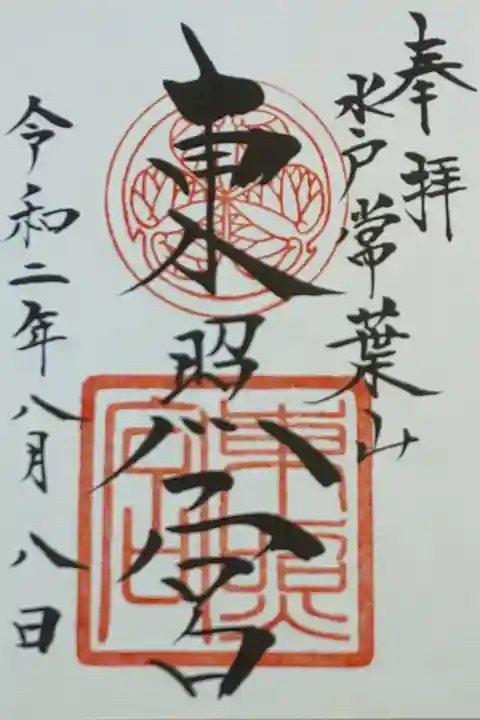 奉拝
水戸常葉山
東照公宮
令和二年八月八日